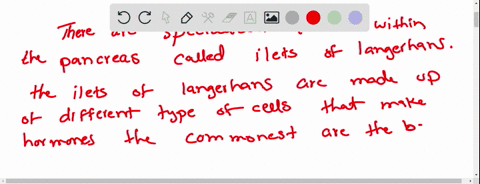 There are within
the pancreas called ilets of langerhans.
the ilets of langerhans are made up
of different type of cells that make
hormones the commonest are the b-